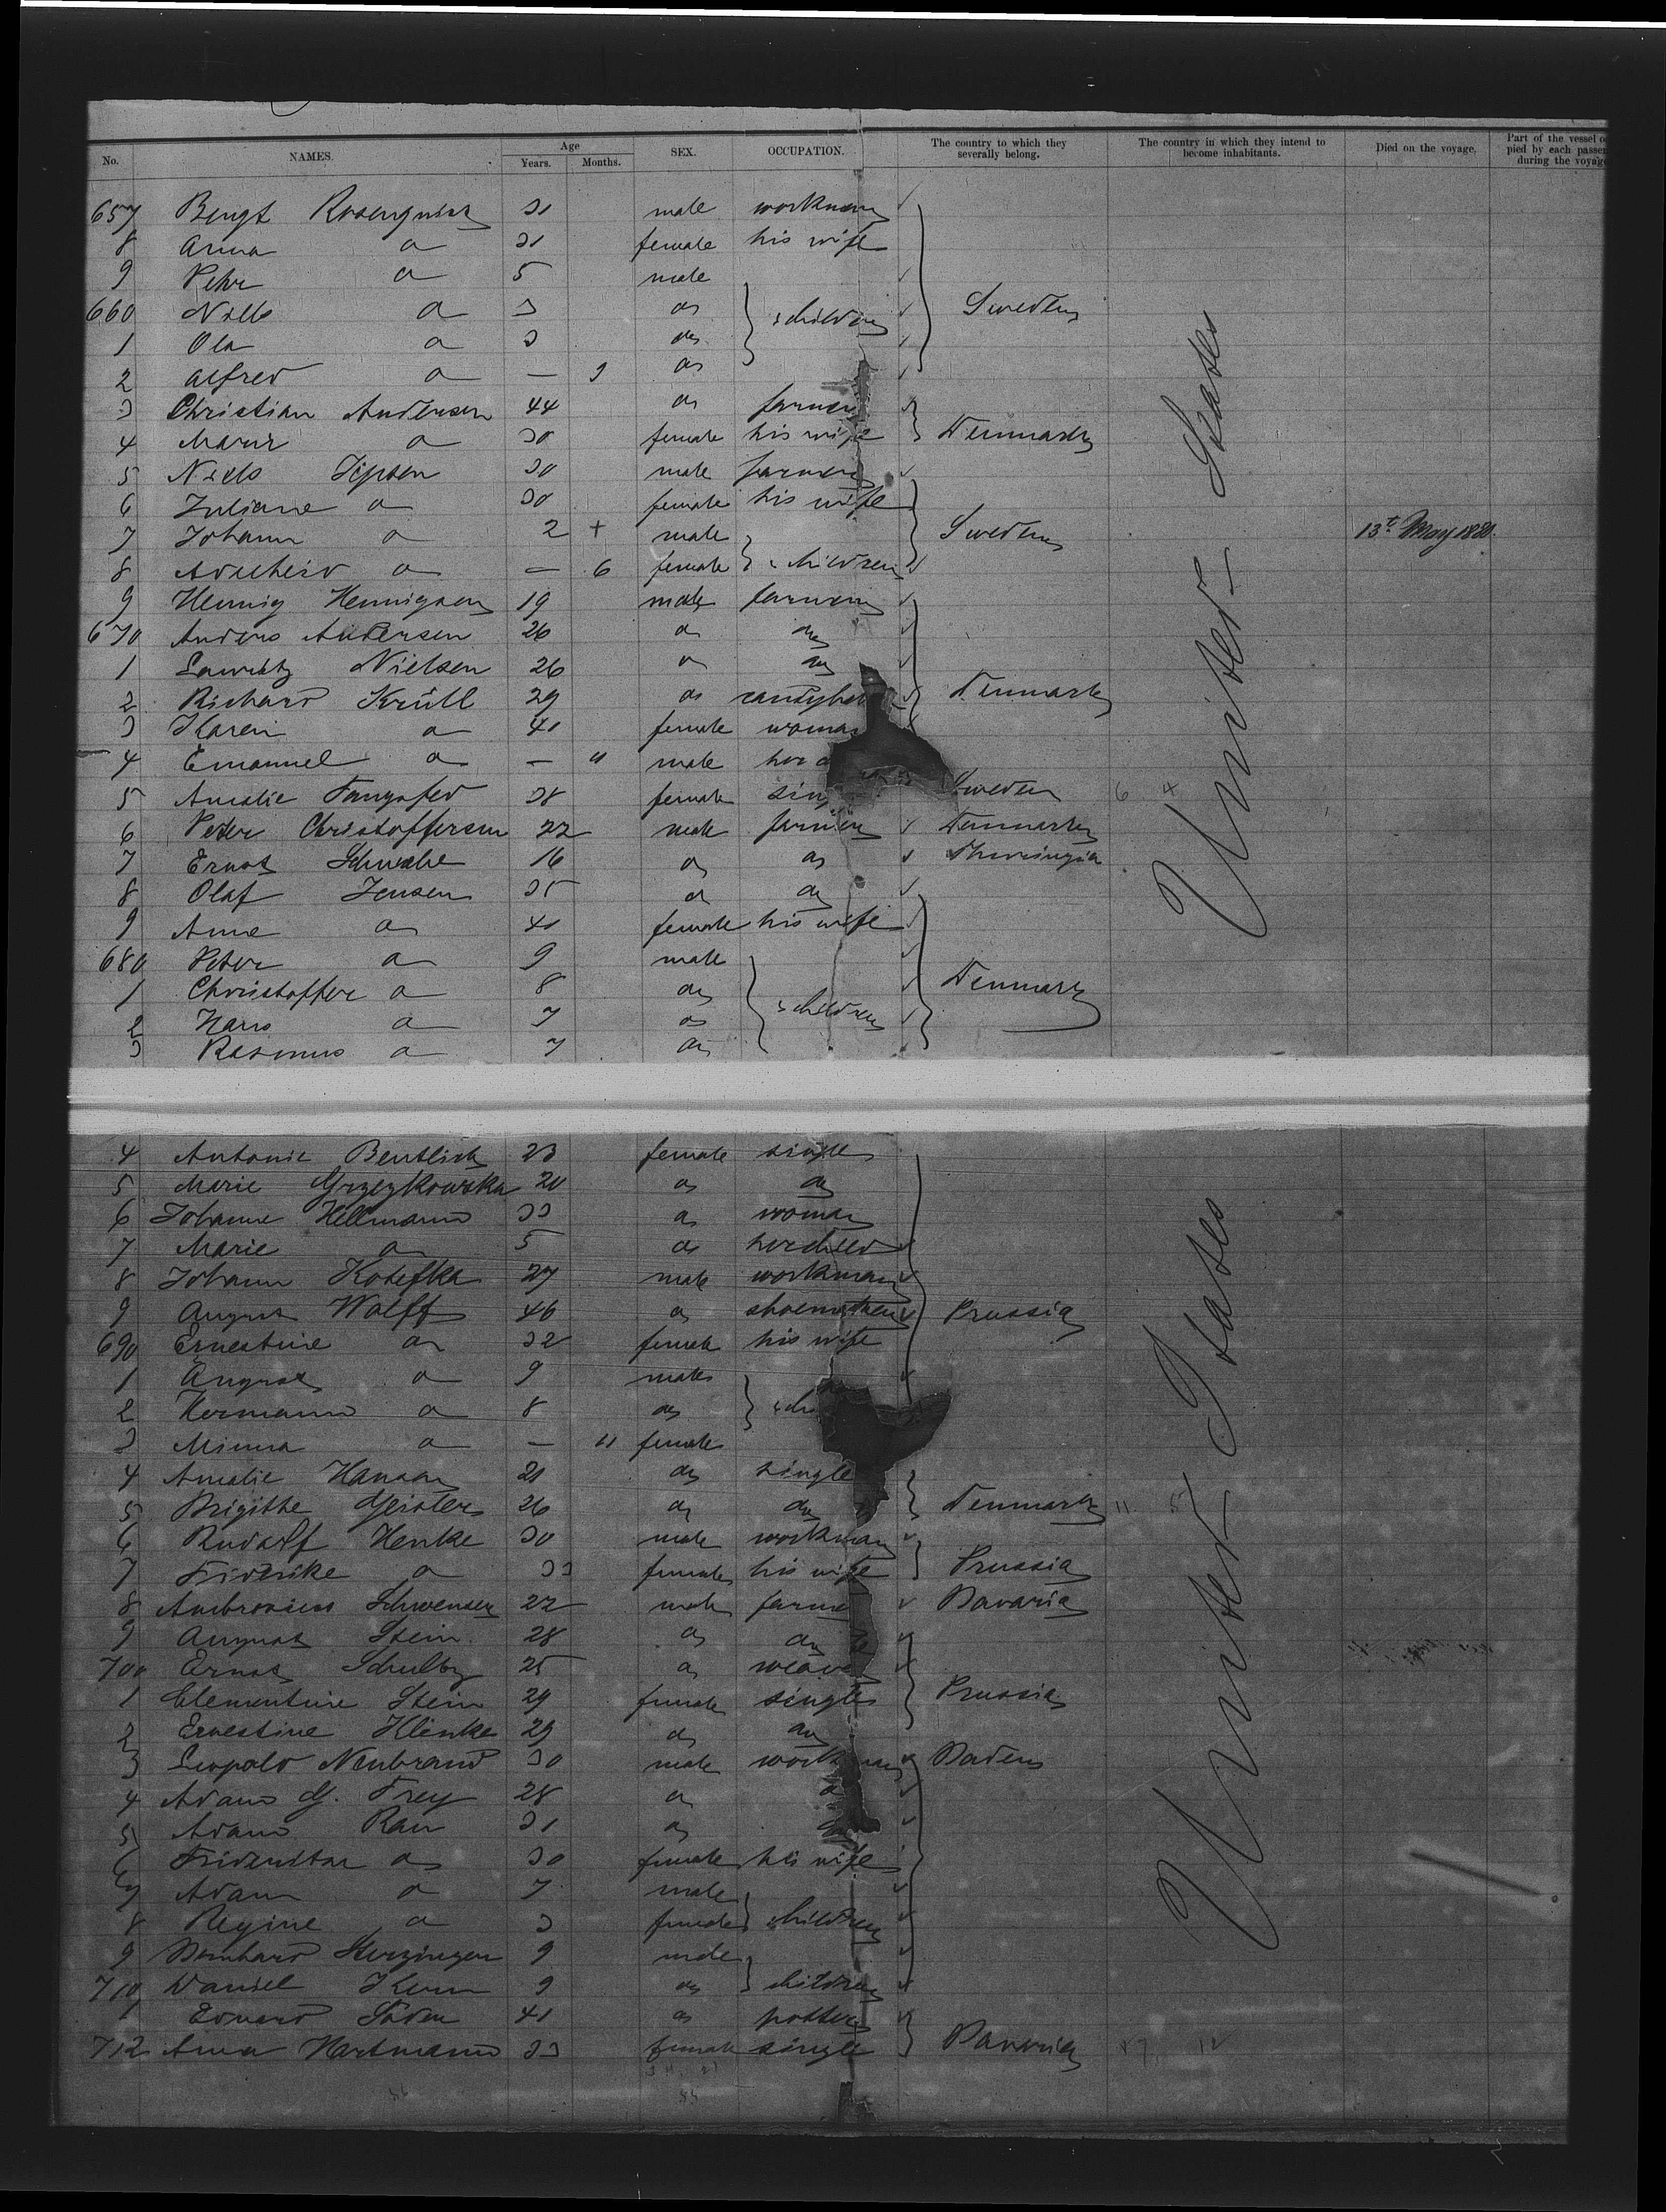 No. NAMES. Age Years. Months. SEX. OCCUPATION. The country to which they severally belong. The country in which they intend to become inhabitants. Died on the voyage. Part of the vessel pied by each during the voyage
657 Bengt Rosenquist 31 male workman
8 Anna a 31 female his wife
9 Pehr a 5 male
660 Nills a 3 do Sweden
1 Ola a 3 do children
2 Alfred a — 9 do
3 Christian Andersen 44 do farmer
4 Marie a 30 female his wife Denmark
5 Niels Jipsen 30 male farmer
6 Juliane a 30 female his wife
7 Johann a 2 + male Sweden 13t. May 1880.
8 Adelheid a — 6 female children
9 Hennig Hennigsen 19 male farmer
670 Anders Andersen 26 do do
1 Lauritz Nielsen 26 do do
2 Richard Krüll 29 do Denmark
3 Karen a 41 female woman
4 Emanuel a — 11 male
5 Amalie 38 female Sweden 6 4
6 Peter Christoffersen 22 male farmer Denmark
7 Ernst Schwabe 16 do do Thuringia
8 Olaf Jensen 35 do do
9 Anne a 41 female his wife
680 Peter a 9 male
1 Christoffer a 8 do Denmark
2 Hans a 7 do children
3 Rasmus a 7 do
United States
4 Antonie 23 female single
5 Marie Grzezkowska 20 do do
6 Johanne Hellmann 33 do woman
7 Marie a 5 do her child
8 Johann Kotefka 27 male workman
9 August Wolff 46 do shoemaker Prussia
690 Ernestine a 32 female his wife
1 August a 9 male
2 Hermann a 8 do
3 Minna a — 11 female
4 Amalie Hansen 21 do single
5 Brigitte Geisler 26 do do Denmark 11. 5
6 Rudolf Henke 30 male workman
7 Friderike a 33 female his wife Prussia
8 Ambrosius Schwenser 22 male farmer Bavaria
9 August Stein 28 do do
700 Ernst Schultz 25 do weaver
1 Clementine Stein 29 female single Prussia
2 Ernestine Klinke 29 do do
3 Leopold Neubrand 30 male workman Baden
4 Adam G. Frey 28 do do
5 Adam Rau 31 do do
6 a 30 female his wife
7 Adam a 7 male
8 Regine a 3 female children
9 Bernhard Herzinger 9 male
710 Daniel Kern 9 do children
1 Eduard 41 do potter
712 Anna Hartmann 33 female single Bavaria 12
United States